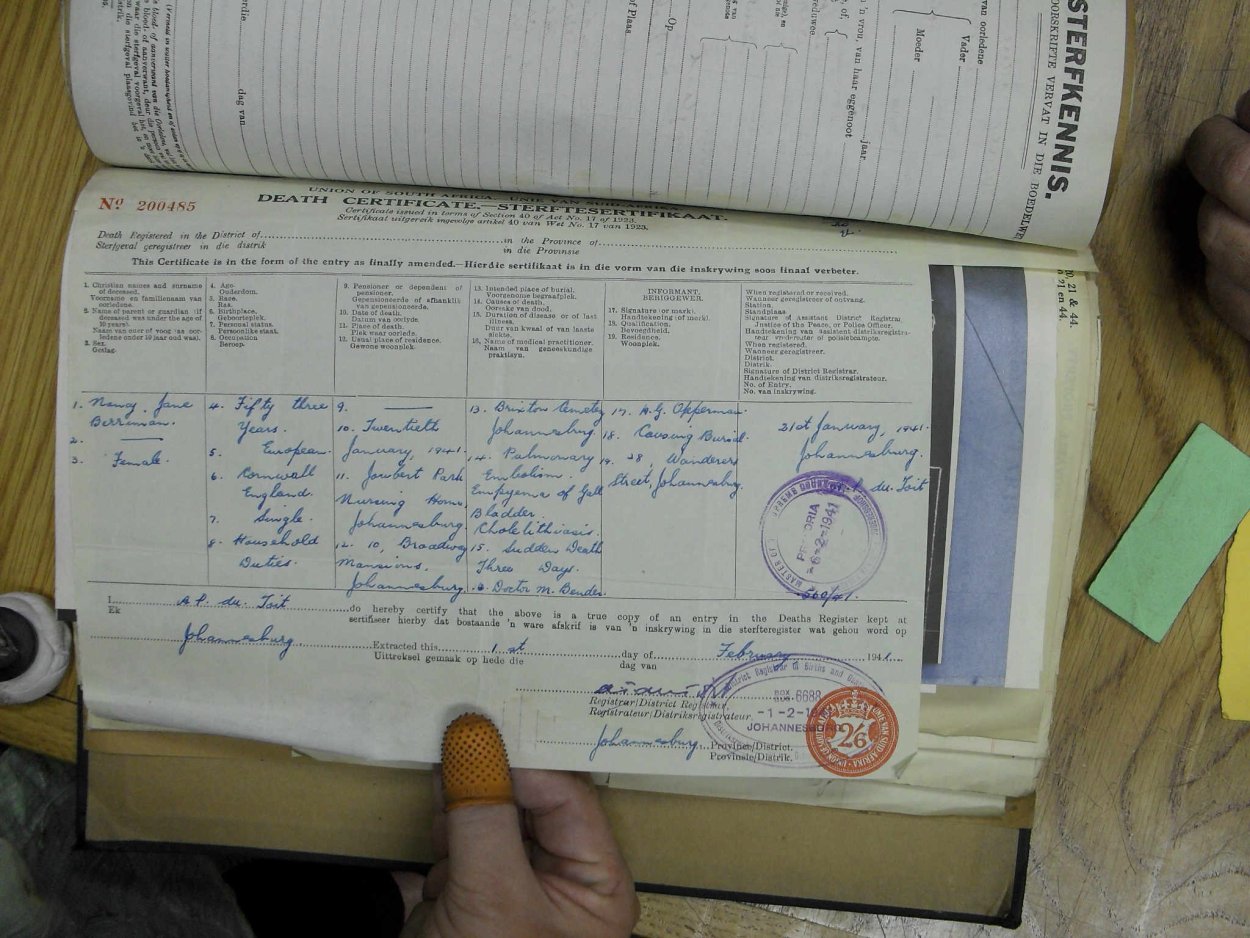 STERFKENNIS-
OORSKRIFTE VERVAT IN DIE BOEDELWE
van oorledene
Vader
Moeder
'n vrou, van haar eggenoot
jaar
Op
of Plaas
dag van
10, 21 & 44.
UNION OF SOUTH AFRICA.—UNIE VAN SUID-AFRIKA.
No 200485
DEATH CERTIFICATE.—STERFTESERTIFIKAAT.
Certificate issued in terms of Section 40 of Act No. 17 of 1923.
Sertifikaat uitgereik ingevolge artikel 40 van Wet No. 17 van 1923.
Death Registered in the District of in the Province of
Sterfgeval geregistreer in die distrik in die Provinsie
This Certificate is in the form of the entry as finally amended.—Hierdie sertifikaat is in die vorm van die inskrywing soos finaal verbeter.
1. Christian names and surname
of deceased.
Voorname en familienaam van
oorledene.
2. Name of parent or guardian (if
deceased was under the age of
10 years).
Naam van ouer of voog (as oor-
ledene onder 10 jaar oud was).
3. Sex.
Geslag.
4. Age.
Ouderdom.
5. Race.
Ras.
6. Birthplace.
Geboorteplek.
7. Personal status.
Persoonlike staat.
8. Occupation
Beroep.
9. Pensioner or dependent of
pensioner.
Gepensioneerde of afhanklik
van gepensioneerde.
10. Date of death.
Datum van oorlyde.
11. Place of death.
Plek waar oorlede.
12. Usual place of residence.
Gewone woonplek.
13. Intended place of burial.
Voorgenome begraafplek.
14. Causes of death.
Oorsake van dood.
15. Duration of disease or of last
illness.
Duur van kwaal of van laaste
siekte.
16. Name of medical practitioner.
Naam van geneeskundige
praktisyn.
INFORMANT.
BERIGGEWER.
17. Signature (or mark).
Handtekening (of merk).
18. Qualification.
Bevoegdheid.
19. Residence.
Woonplek.
When registered or received.
Wanneer geregistreer of ontvang.
Station.
Standplaas.
Signature of Assistant District Registrar,
Justice of the Peace, or Police Officer.
Handtekening van assistent distriksregistra-
teur vrederegter of polisiebeampte.
When registered.
Wanneer geregistreer.
District.
Distrik.
Signature of District Registrar.
Handtekening van distriksregistrateur.
No. of Entry.
No. van inskrywing.
1. Nancy Jane
Berriman.
2. —
3. Female.
4. Fifty three
Years.
5. European.
6. Cornwall
England.
7. Single.
8. Household
Duties.
9. —
10. Twentieth
January, 1941.
11. Joubert Park
Nursing Home
Johannesburg.
12. 10, Broadway
Mansions.
Johannesburg.
13. Brixton Cemetery
Johannesburg.
14. Pulmonary
Embolism.
Empyema of Gall
Bladder.
Cholelithiasis.
15. Sudden Death
Three Days.
Doctor M. Bender
17. H.G. Opperman.
18. Causing Burial.
19. 28, Wanderers
Street, Johannesburg.
21st January, 1941.
Johannesburg.
du. Toit
MASTER OF SUPREME COURT
PRETORIA
-6-2-1941
560/41.
I A.P. du. Toit do hereby certify that the above is a true copy of an entry in the Deaths Register kept at
Ek sertifiseer hierby dat bostaande 'n ware afskrif is van 'n inskrywing in die sterfteregister wat gehou word op
Johannesburg Extracted this 1st day of February 1941.
Uittreksel gemaak op hede die dag van
Registrar/District Registrar.
Registrateur/Distriksregistrateur.
District Registrar of Births and Deaths
BOX 6688
-1-2-1
JOHANNESBURG
Johannesburg Province/District.
Provinsie/Distrik.
UNIE VAN SUID AFRIKA
2/6